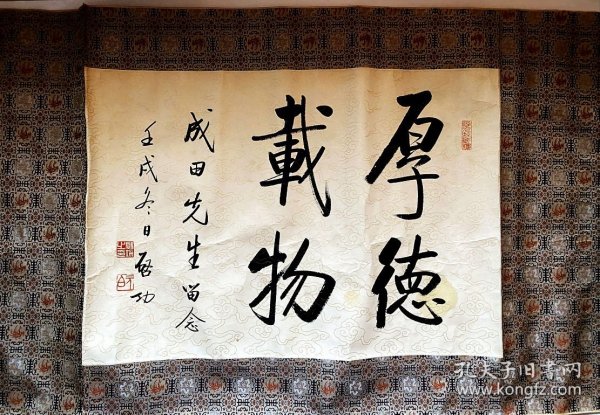 厚德
載物
成田先生留念
壬戌冬日啓功
孔夫子旧书网
www.kongfz.com